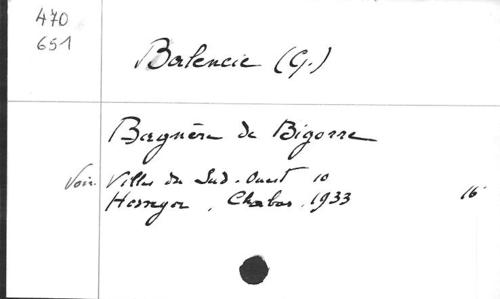 470
651
Balencie (G.)
Bagnère de Bigorre
Voir. Villes du Sud-Ouest 10
Hossegor, Chabas, 1933 16